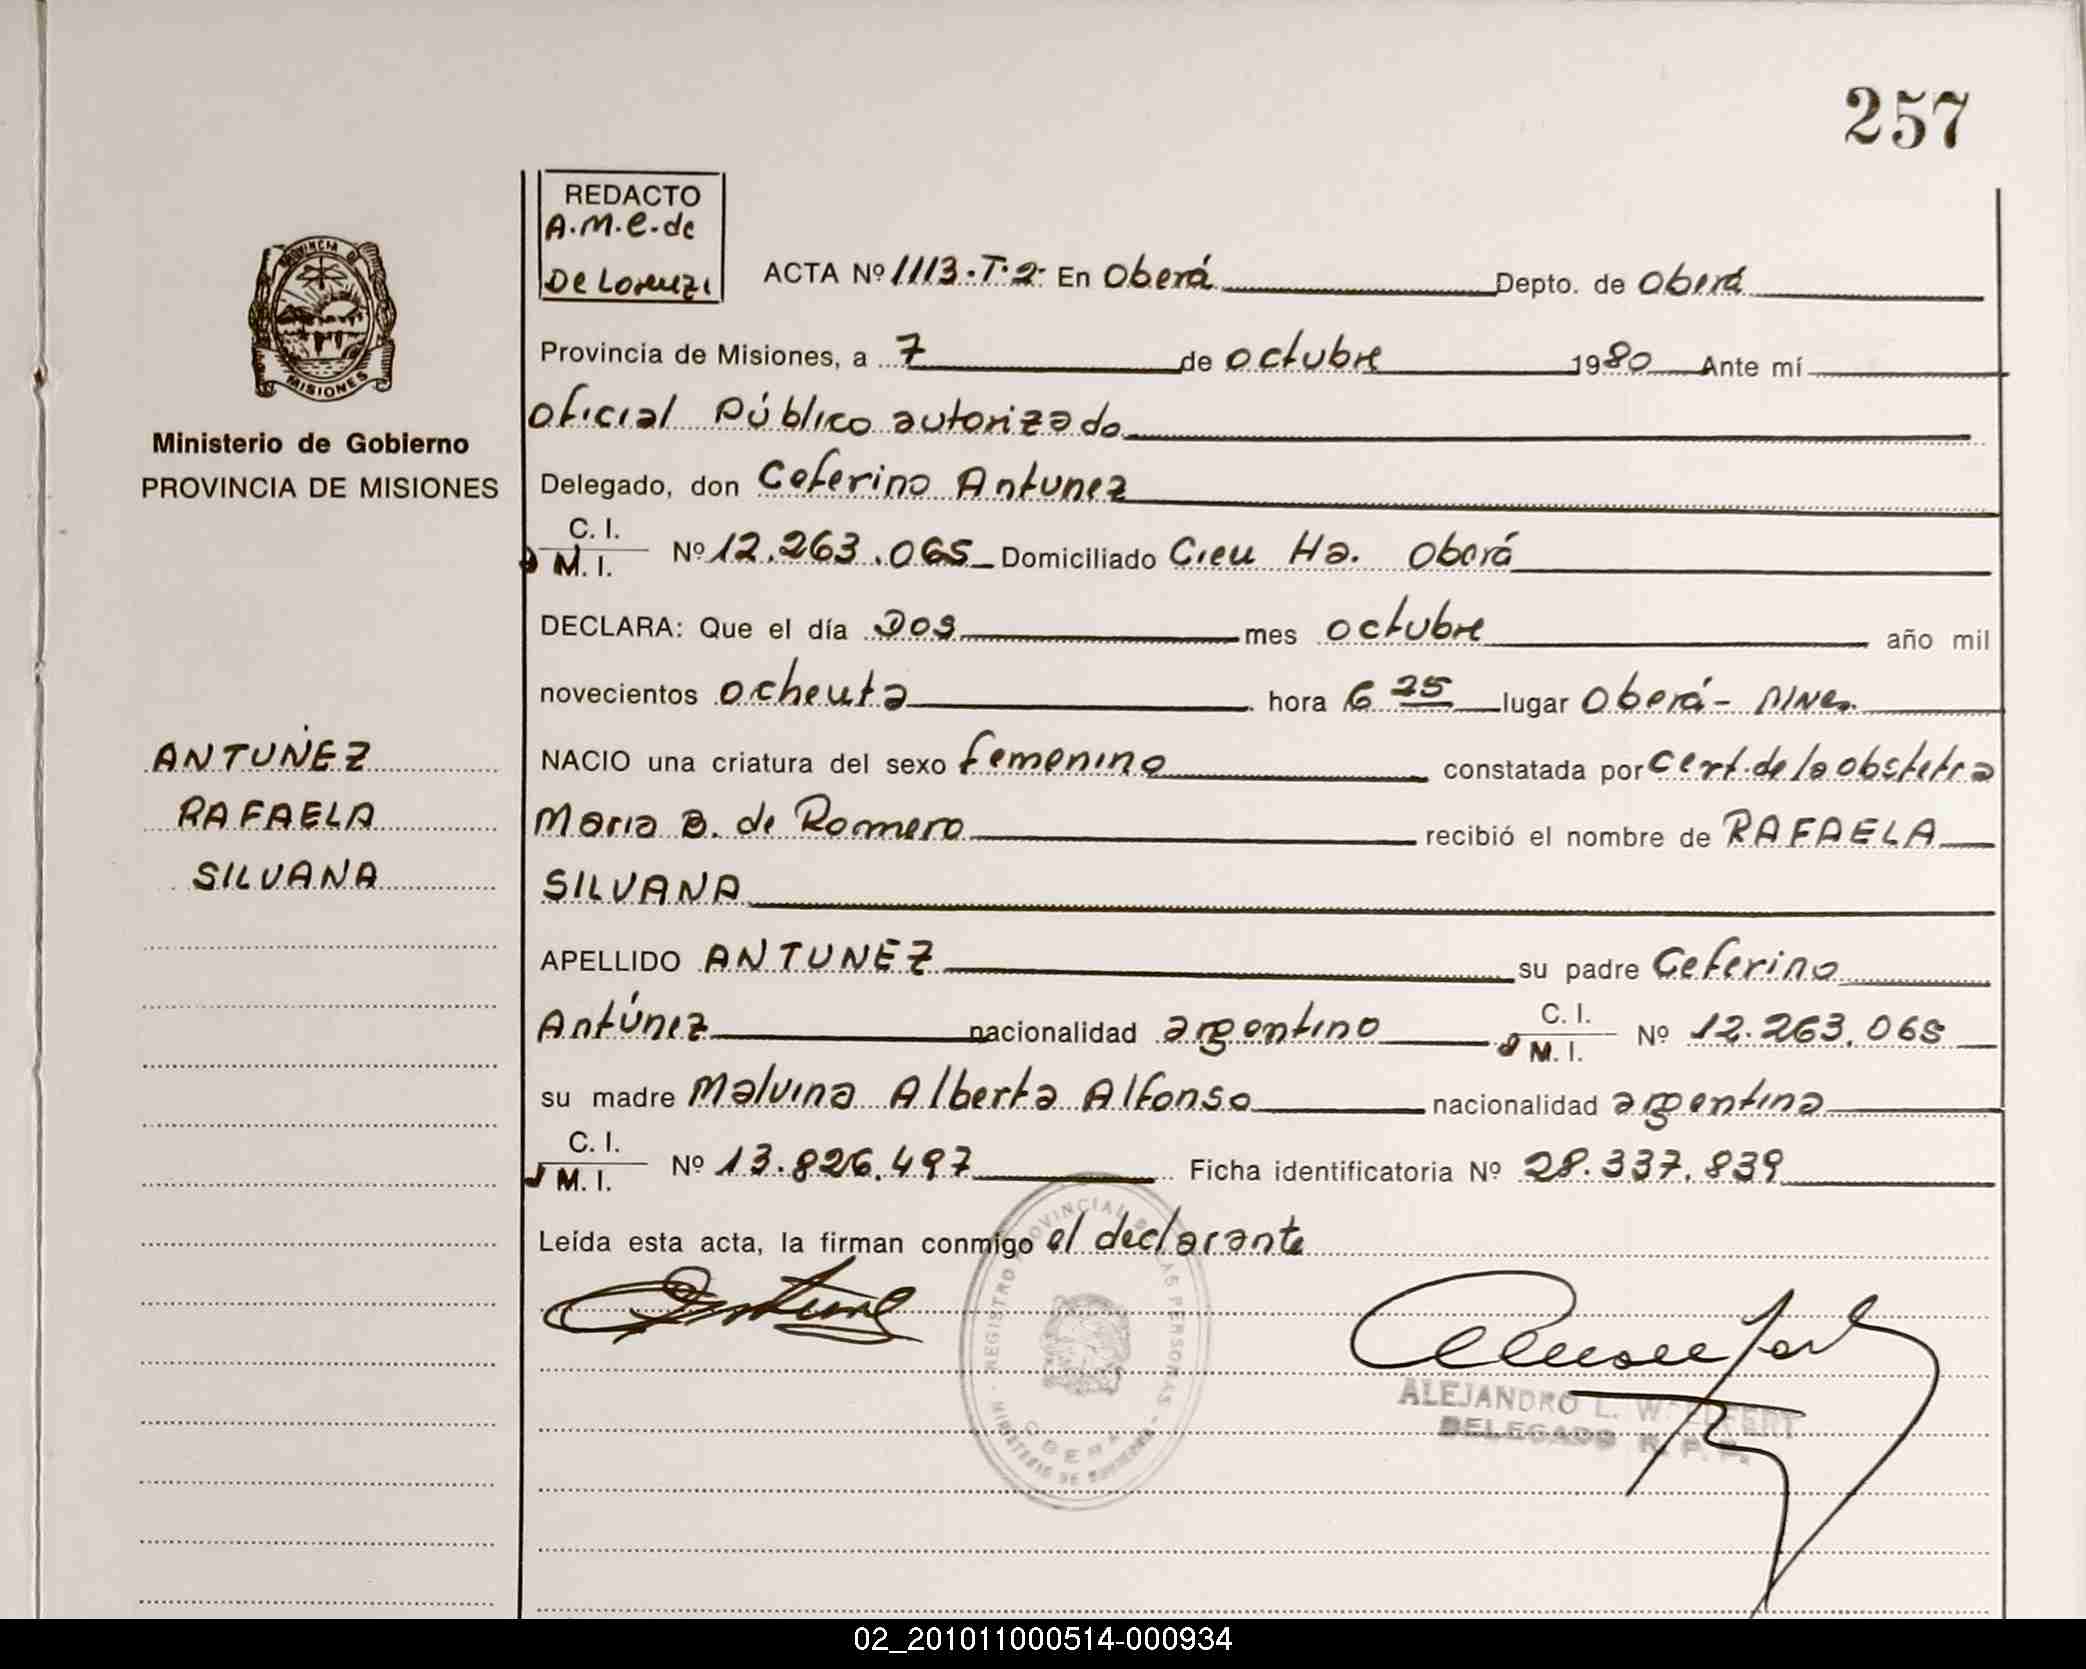 257
REDACTO
A.M.e.de
De Lorenzi
PROVINCIA DE
MISIONES
Ministerio de Gobierno
PROVINCIA DE MISIONES
ACTA Nº 1113.T.2. En Oberá Depto. de Oberá
Provincia de Misiones, a 7 de octubre 1980 Ante mí
oficial Público autorizado
Delegado, don Ceferino Antunez
C. I.
M. I. Nº 12.263.065 Domiciliado Cieu Ha. Oberá
DECLARA: Que el día Dos mes octubre año mil
novecientos ochenta hora 6 25 lugar Oberá -
NACIO una criatura del sexo femenino constatada por cert. de la obstetra
Maria B. de Romero recibió el nombre de RAFAELA
SILVANA
APELLIDO ANTUNEZ su padre Ceferino
Antúnez nacionalidad argentino C. I.
M. I. Nº 12.263.065
su madre Malvina Alberta Alfonso nacionalidad argentina
C. I.
M. I. Nº 13.826.497 Ficha identificatoria Nº 28.337.839
Leída esta acta, la firman conmigo el declarante
ANTÚNEZ
RAFAELA
SILVANA
REGISTRO PROVINCIAL DE LAS PERSONAS
MINISTERIO DE GOBIERNO
OBERA
ALEJANDRO L.
DELEGADO R. P. P.
02_201011000514-000934